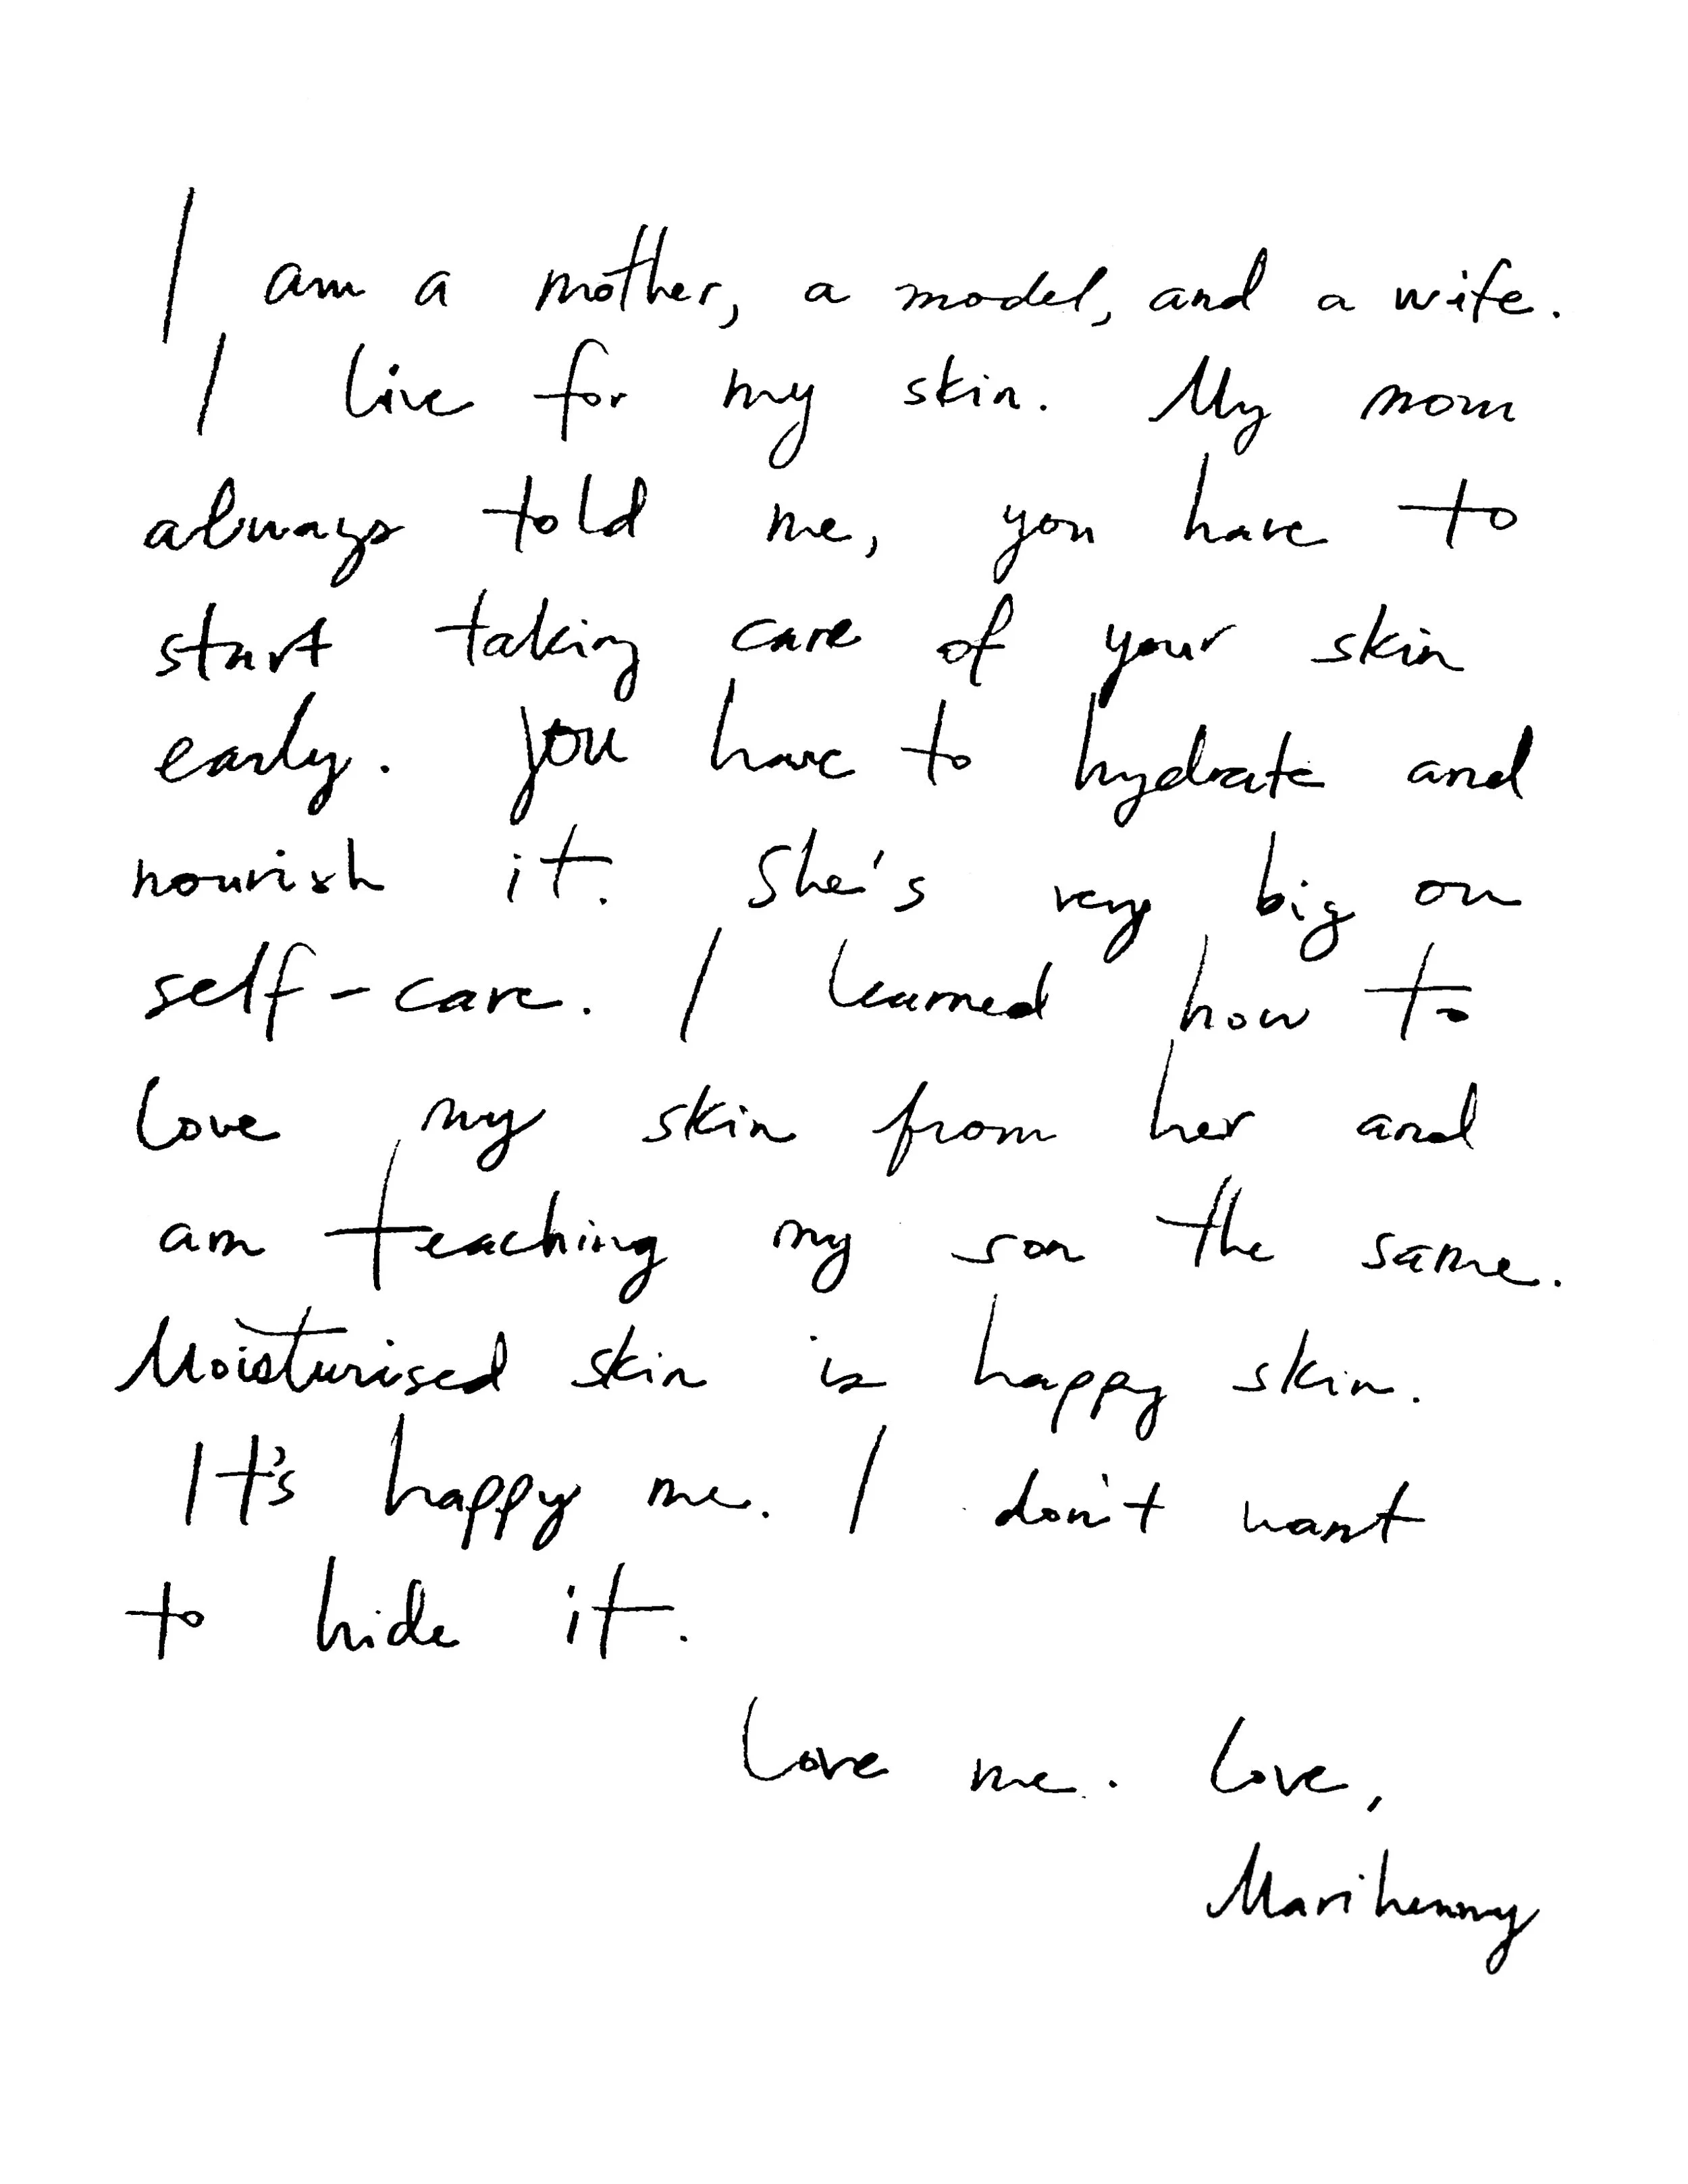 I am a mother, a model, and a wife.
I live for my skin. My mom
always told me, you have to
start taking care of your skin
early. You have to hydrate and
nourish it. She's very big on
self-care. I learned how to
love my skin from her and
am teaching my son the same.
Moisturised skin is happy skin.
It's happy me. I don't want
to hide it.
Love me. Love,
Marihenny